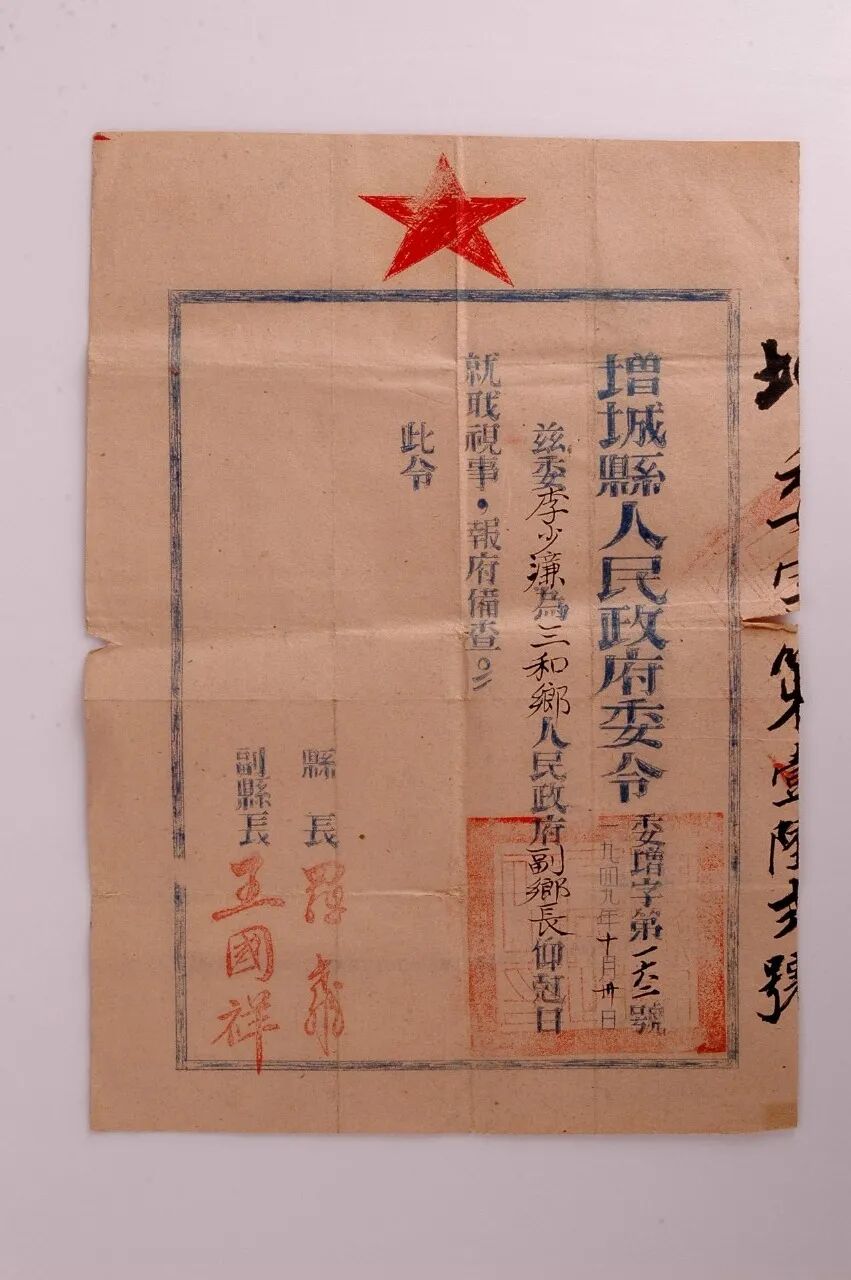 增委字第壹陸貳號
增城縣人民政府委令
委增字第一六二號
一九四九年十月卅日
茲委李少濂為三和鄉人民政府副鄉長仰尅日
就职視事，報府備查。
此令
縣長
副縣長王國祥